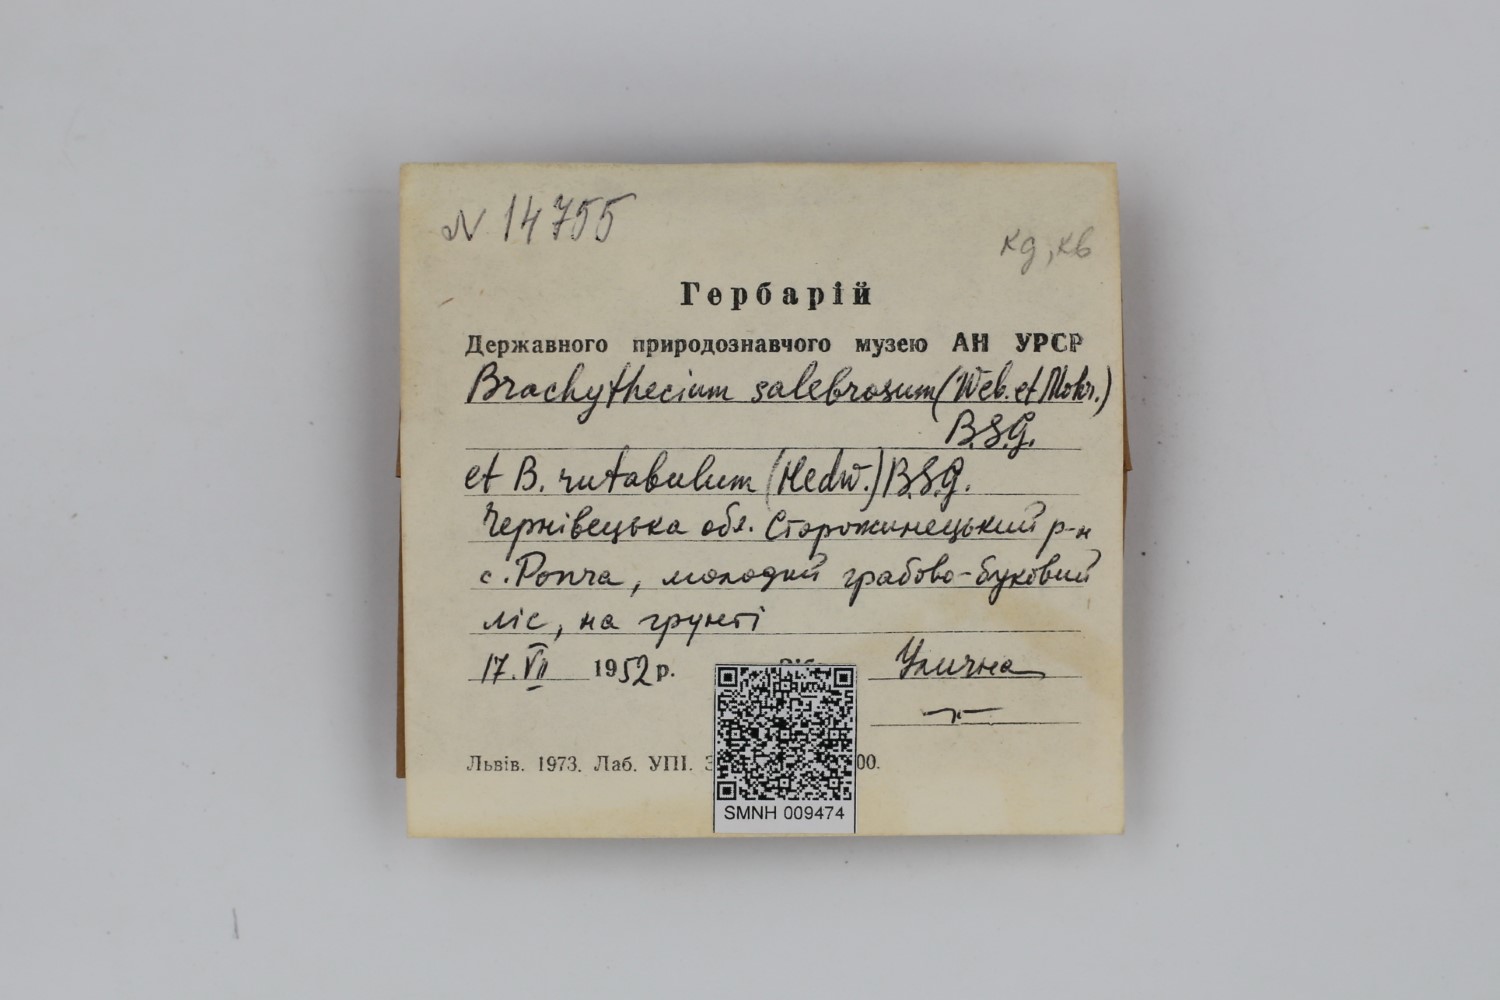 N 14755
кд, кв
Гербарій
Державного природознавчого музею АН УРСР
Brachythecium salebrosum (Web. et Mohr.)
B.S.G.
et B. rutabulum (Hedw.) B.S.G.
Чернівецька обл. Сторожинецький р-н
с. Ропча, молодий грабово-буковий
ліс, на грунті
17.VII 1952 р. Улична
Львів. 1973. Лаб. УПІ. З 00.
SMNH 009474